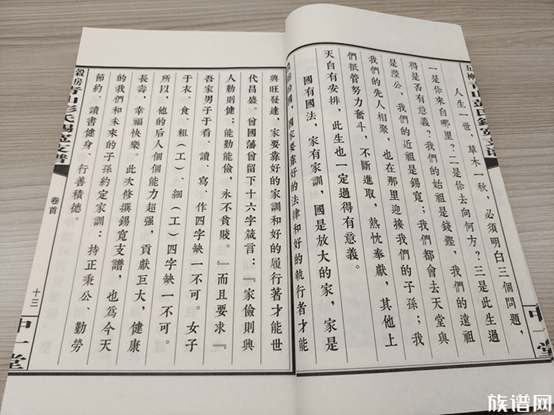 人生一世，草木一秋，必須明白三個問題，
一是你來自哪里？二是你去向何方？三是此生過
得是否有意義？我們的始祖是錢鏗，我們的遠祖
是瀅公，我們的始祖是錫寬；我們都會去天堂與
我們的先人相聚，也在那里迎接我們的子孫；我
們祇管努力奮斗，不斷進取，熱忱奉獻，其他上
天自有安排，此生也一定過得有意義。
國有國法，家有家訓，國是放大的家，家是
國家要靠好的法律和好的執行者才能
興旺發達，家要靠好的家訓和好的履行者才能世
代昌盛。曾國藩曾留下十六字箴言：『家儉則興，
人勤則健；能勤能儉，永不貧賤。』而且要求『
吾家男子于看、讀、寫、作四字缺一不可。女子
于衣、食、粗（工）、細（工）四字缺一不可。』
所以，他的后人個個能力超强，貢獻巨大，健康
長壽，幸福快樂。此次修撰錫寬支譜，也爲今天
的我們和未來的子孫約定家訓：持正秉公、勤勞
節約、讀書健身、行善積德。
青山彭氏錫寬支譜
卷首
十三
中一堂
族谱网